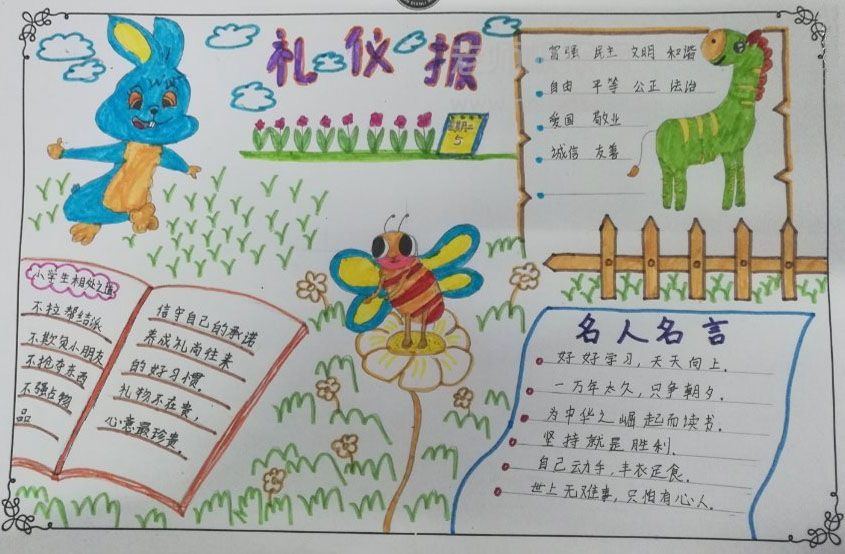 礼仪报
星期二
5
富强 民主 文明 和谐
自由 平等 公正 法治
爱国 敬业
诚信 友善
小学生相处之道
不拉帮结派
不欺负小朋友
不抢夺东西
不强占物
品
信守自己的承诺
养成礼尚往来
的好习惯.
礼物不在贵,
心意最珍贵.
名人名言
好好学习,天天向上.
一万年太久,只争朝夕.
为中华之崛起而读书.
坚持就是胜利.
自己动手,丰衣足食.
世上无难事,只怕有心人.